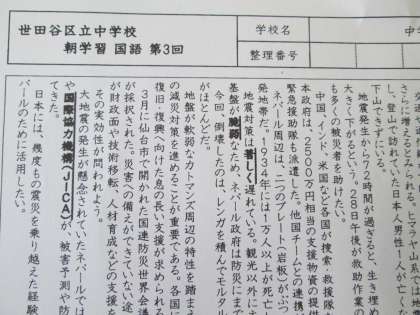 世田谷区立中学校
朝学習 国語 第3回
学校名
中
整理番号
さらに増える
し、登山で訪れていた日本人男性1人が亡くな
下山できずにいる。
地震発生から72時間が過ぎると、生き埋め
大きく下がるという。28日午後が救助作業の
も多くの被災者を助けたい。
中国、インド、米国など各国が捜索・救援隊
本政府は、2500万円相当の支援物資の提供
緊急援助隊も派遣した。他国チームとの連携
ネパール周辺は、二つのプレート(岩板)がぶつ
発地帯だ。1934年には1万人以上が死亡し
地震対策は著しく遅れている。観光以外に
基盤が脆弱なため、ネパール政府は防災にまで
今回、倒壊したのは、レンガを積んでモルタル
がほとんどだ。
地盤が軟弱なカトマンズ周辺の特性を踏まえ
の減災対策を進めることが重要である。各国に
復旧・復興へ向けた息の長い支援が求められる
3月に仙台市で開かれた国連防災世界会議
が採択された。災害への備えができていない途
が財政面や技術移転、人材育成などの支援を
その実効性が問われよう。
大地震の発生が懸念されていたネパールでは
や国際協力機構(JICA)が、被害予測や防
てきた。
日本には、幾度もの震災を乗り越えた経験
パールのために活用したい。